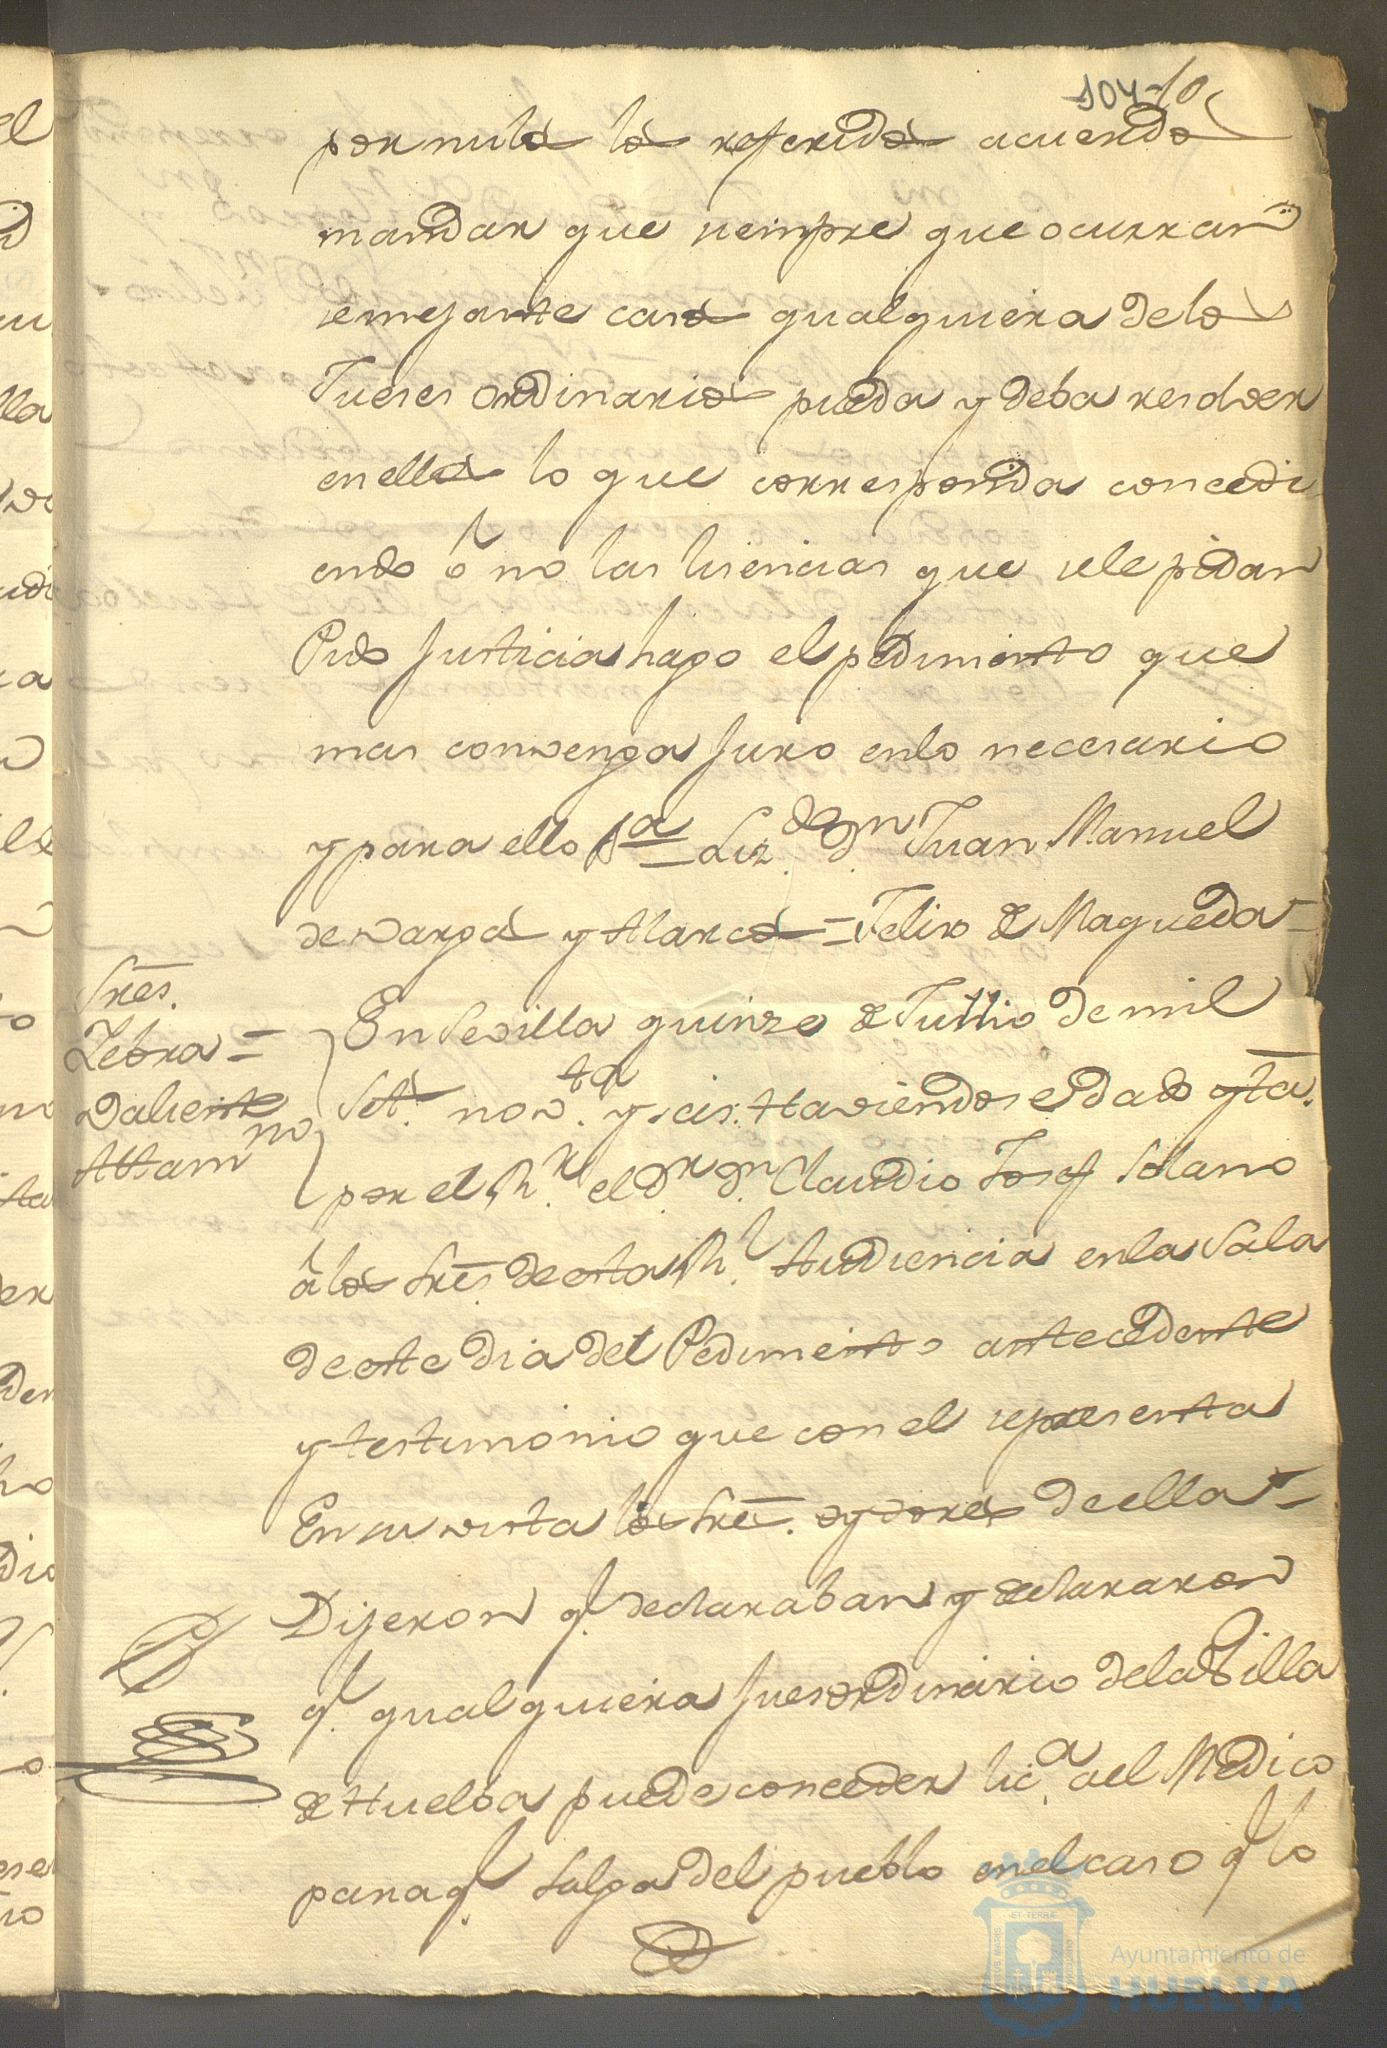 104-10
por nulos los referidos acuerdos
mandar que siempre que ocurran
semejantes casos qualquiera de los
Jueses ordinarios pueda y deba resolver
en ellos lo que corresponda concedi
endo ó no las lisencias que se le pidan
Pido Justicia hago el pedimento que
mas convenga Juro en lo necesario
y para ello &a = Liz.do D.n Juan Manuel
de Vargas y Alarcon = Felix de Maqueda =
Sres.
Zebra =
Valiente
Altam.no
En Sevilla quinze de Jullio de mil
Set.s nov.ta y seis. Haviendose dado qta.
por el R.r el D.r D.n Claudio Josef Solano
á los Sres. de esta R.l Audiencia en la Sala
de este dia del Pedimento antecedente
y testimonio que con el se presenta
En su vista los Sres. oydores de ella =
Dijeron q.e declaraban y declararon
q.e qualquiera Jues ordinario de la Villa
de Huelba puede conceder lic.a al Medico
para q.e Salga del pueblo en el caso q.e lo
Ayuntamiento de
HUELVA